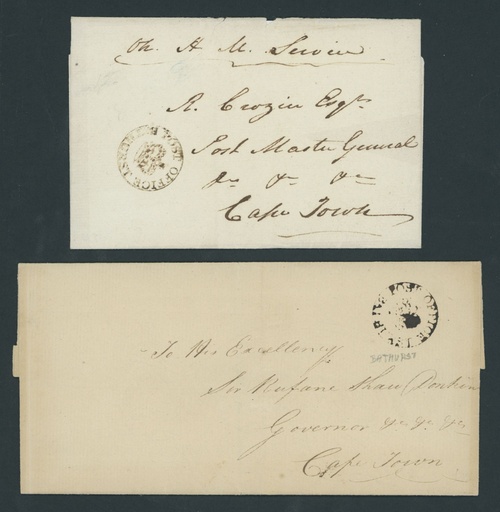 On H M. Service
R. Crozier Esqre
Post Master General
&c &c &c
Cape Town
POST OFFICE
POST OFFICE
BATHURST
To His Excellency
Sir Rufane Shaw Donkin
Governor &c &c &c
Cape Town